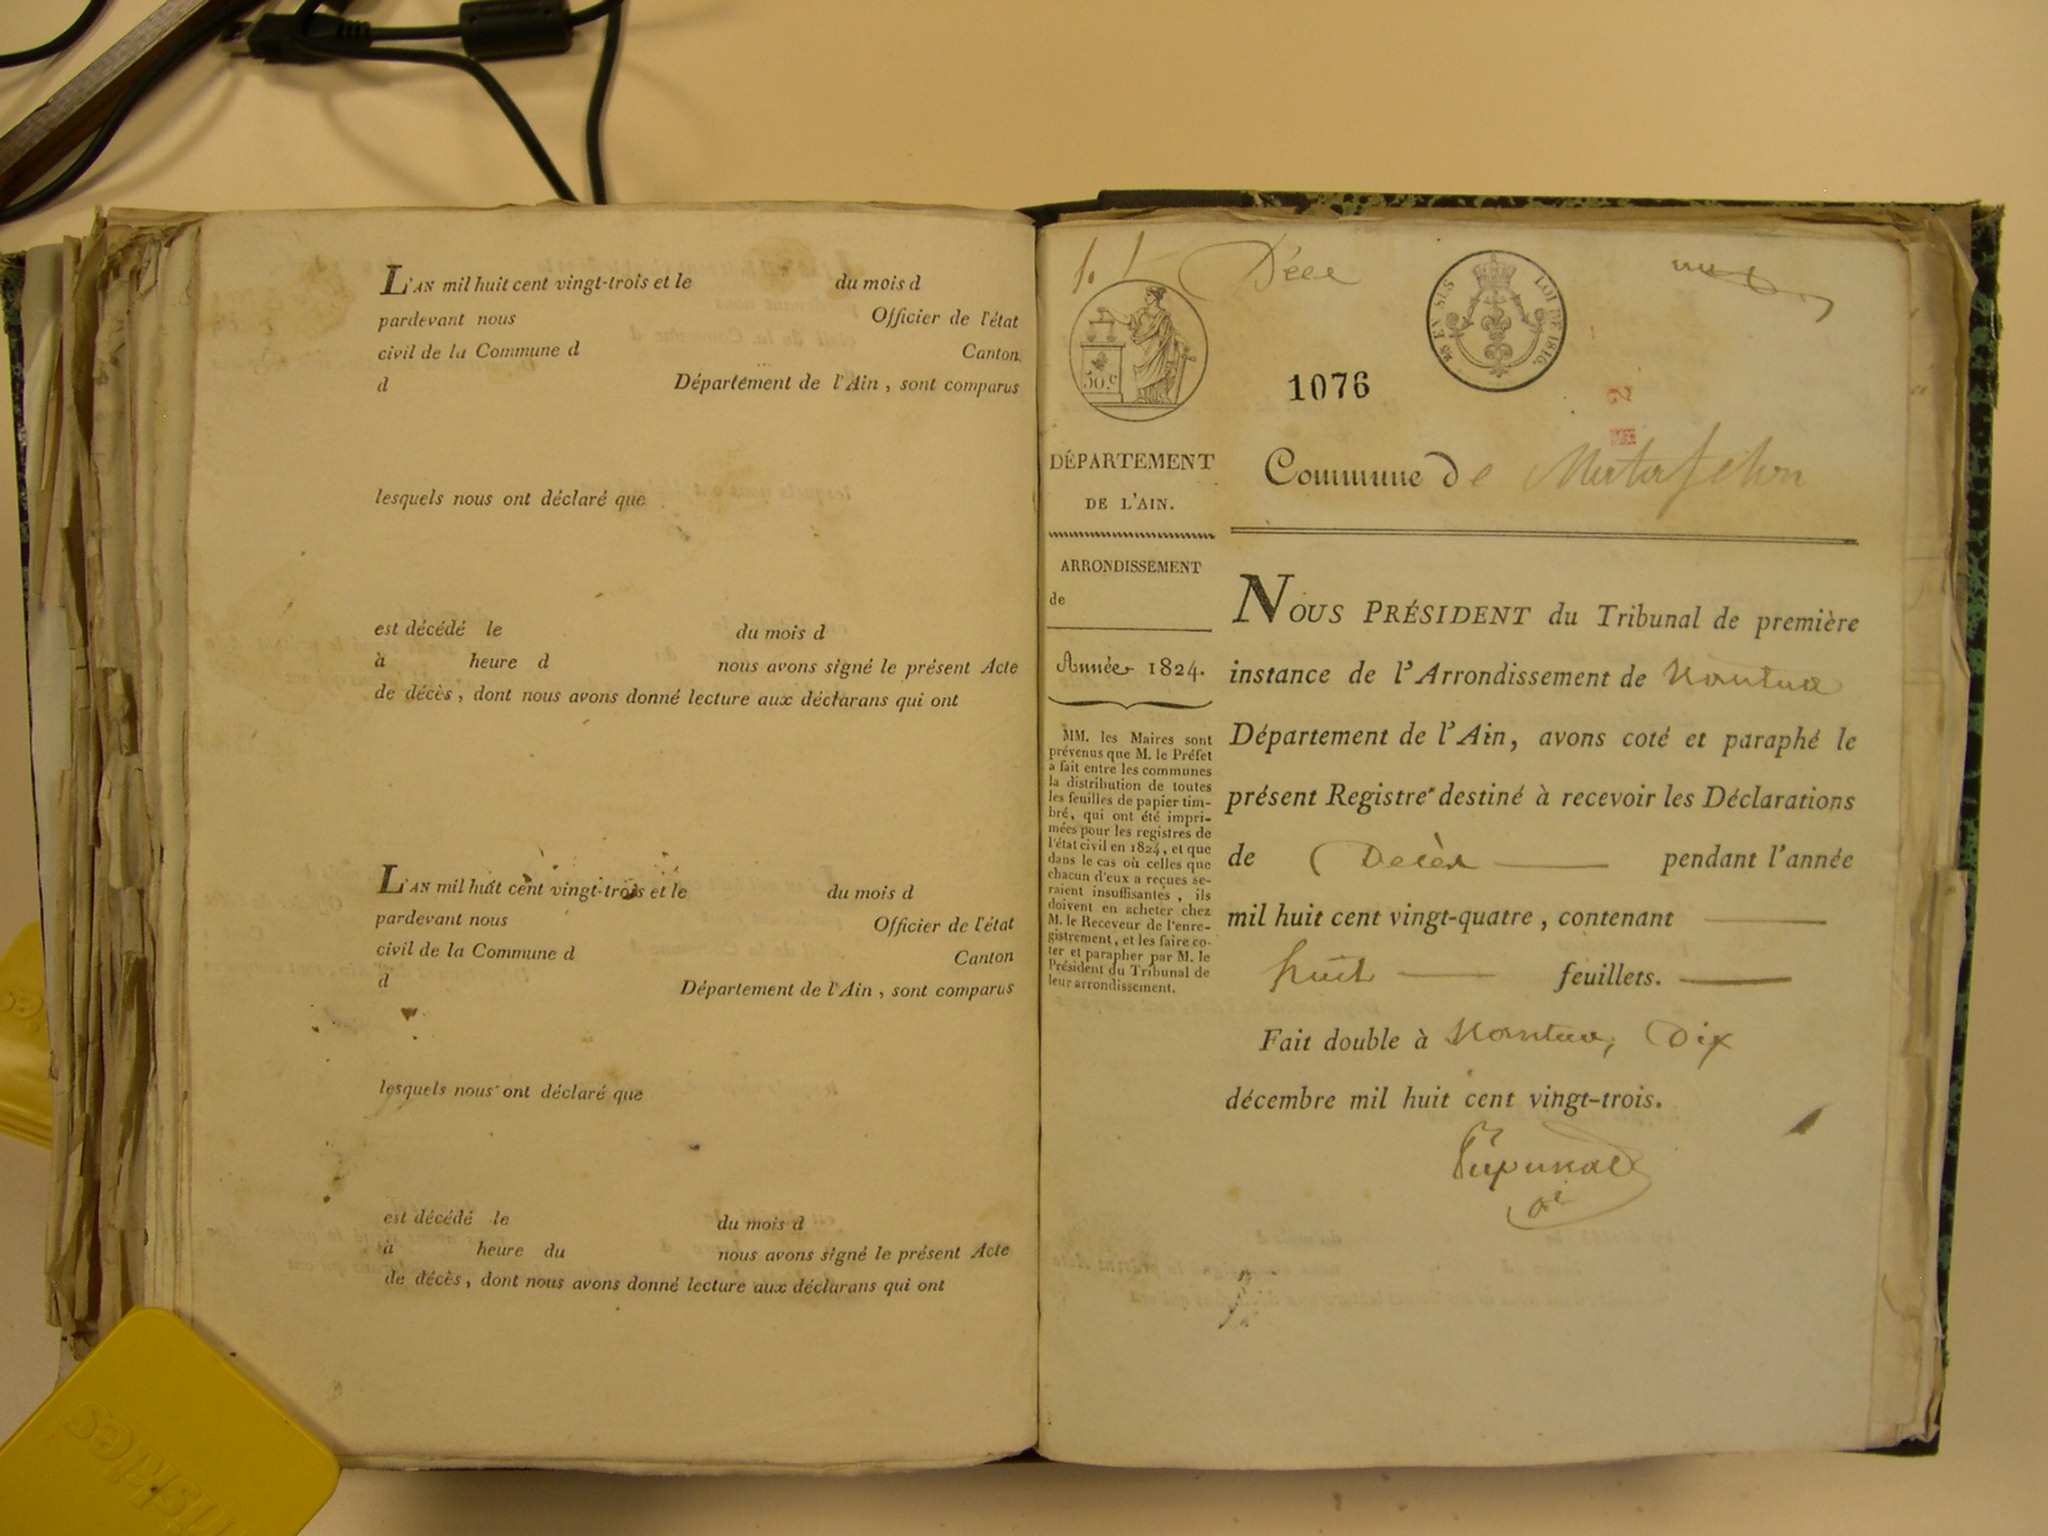 L'AN mil huit cent vingt-trois et le du mois d
pardevant nous Officier de l'état
civil de la Commune d Canton
d Département de l'Ain, sont comparus
lesquels nous ont déclaré que
est décédé le du mois d
à heure d nous avons signé le présent Acte
de décès, dont nous avons donné lecture aux déclarans qui ont
L'AN mil huit cent vingt-trois et le du mois d
pardevant nous Officier de l'état
civil de la Commune d Canton
d Département de l'Ain, sont comparus
lesquels nous ont déclaré que
est décédé le du mois d
à heure du nous avons signé le présent Acte
de décès, dont nous avons donné lecture aux déclarans qui ont
50.c
LOI DE 1816.
1076
DÉPARTEMENT
DE L'AIN.
ARRONDISSEMENT
de
Année 1824.
MM. les Maires sont
prévenus que M. le Préfet
a fait entre les communes
la distribution de toutes
les feuilles de papier tim-
bré, qui ont été impri-
mées pour les registres de
l'état civil en 1824, et que
dans le cas où celles que
chacun d'eux a reçues se-
raient insuffisantes, ils
doivent en acheter chez
M. le Receveur de l'enre-
gistrement, et les faire co-
ter et parapher par M. le
Président du Tribunal de
leur arrondissement.
Commune de Matafelon
NOUS PRÉSIDENT du Tribunal de première
instance de l'Arrondissement de Nantua
Département de l'Ain, avons coté et paraphé le
présent Registre destiné à recevoir les Déclarations
de Décès pendant l'année
mil huit cent vingt-quatre, contenant
huit feuillets.
Fait double à Nantua, Dix
décembre mil huit cent vingt-trois.